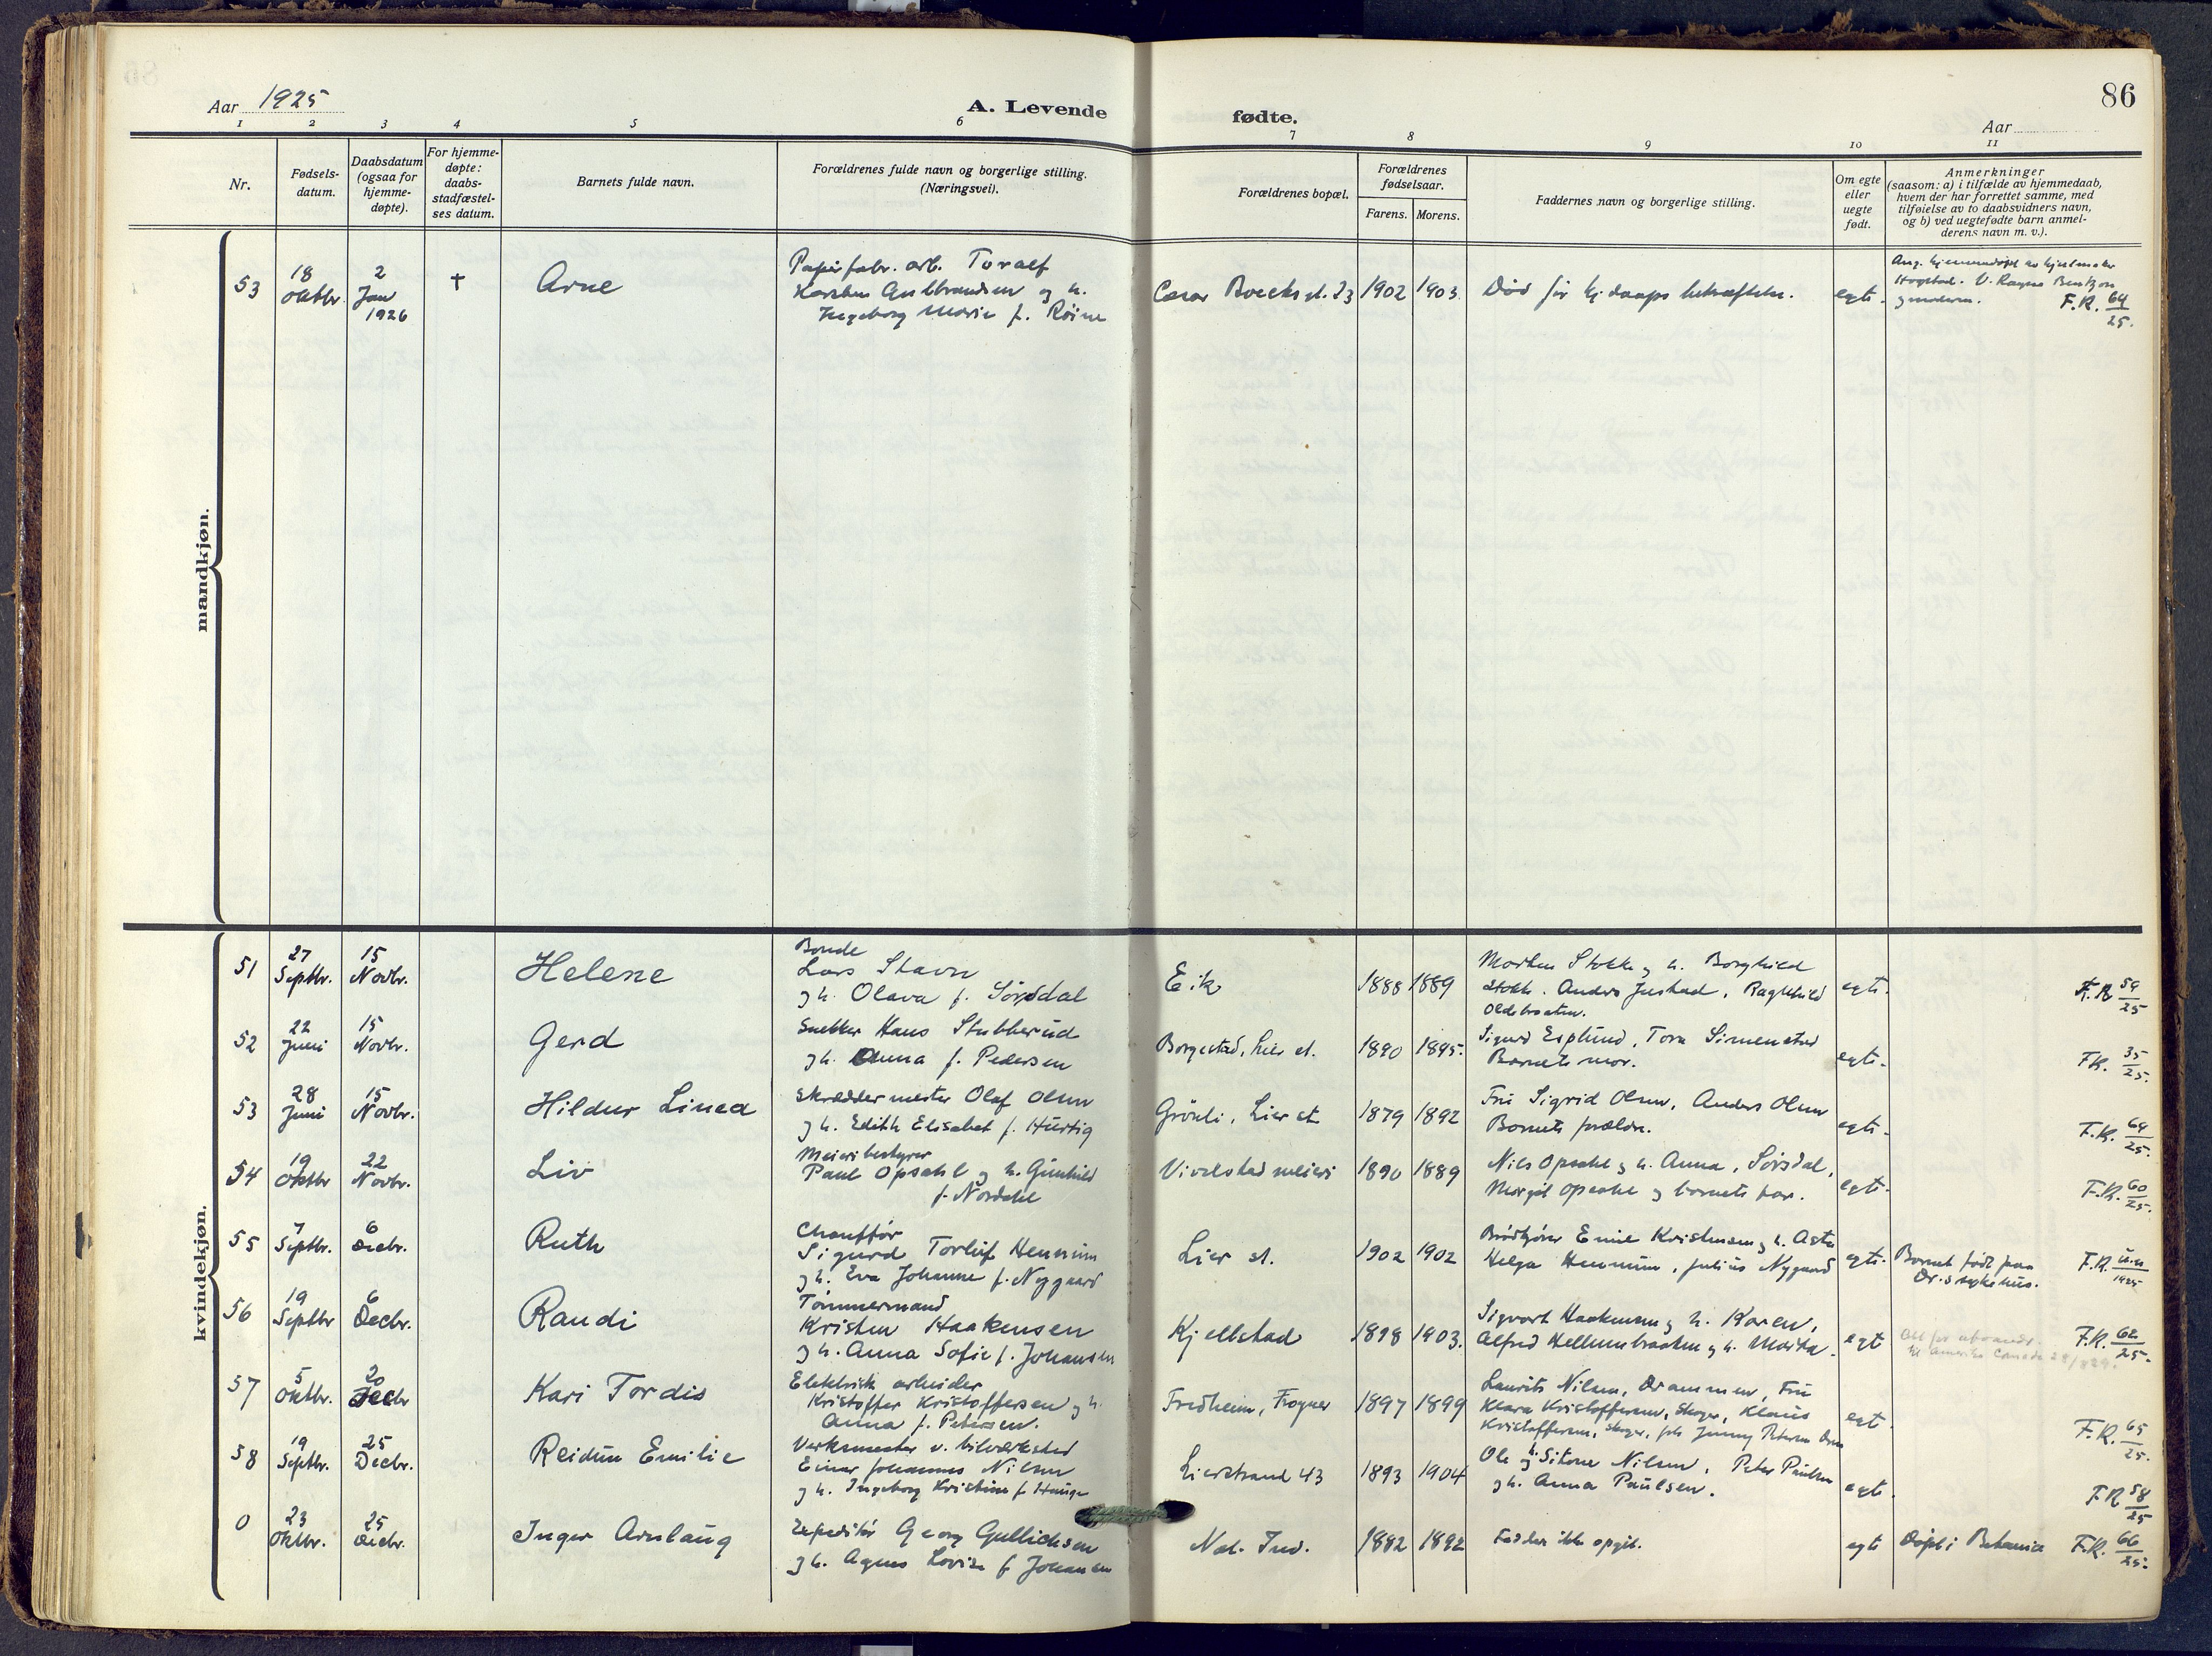 Aar 1925
A. Levende fødte.
86
Aar
1 2 3 4 5 6 7 8 9 10 11
Nr.
Fødsels-
datum.
Daabsdatum
(ogsaa for
hjemme-
døpte).
For hjemme-
døpte:
daabs-
stadfæstel-
ses datum.
Barnets fulde navn.
Forældrenes fulde navn og borgerlige stilling.
(Næringsvei).
Forældrenes bopæl.
Forældrenes
fødselsaar.
Farens. Morens.
Faddernes navn og borgerlige stilling.
Om egte
eller
uegte
født.
Anmerkninger
(saasom: a) i tilfælde av hjemmedaab,
hvem der har forrettet samme, med
tilføielse av to daabsvidners navn,
og b) ved uegtefødte barn anmel-
derens navn m. v.).
mandkjøn.
53
18
Oktbr.
2
Jan
1926
†
Arne
Papirfabr. arb. Toralf
Karsten Gulbrandsen og h.
Ingeborg Marie f. Röine
Boecks gt. 23
1902
1903.
Död för hj. daaps bekræftelse.
egte.
Ang. hjemmedøpt av
gmoderen.
F.R. 64/25.
kvindekjøn.
51
27
Septbr.
15
Novbr.
Helene
Bonde
Lars Stavn
g h. Olava f. Sörsdal
Eik
1888
1889
Morten Stokke g h. Borghild
Stokke. Anders Justad, Ragnhild
Oldebraaten.
egte.
F.R. 59/25
52
22
Juni
15
Novbr.
Gerd
Snekker Hans Stubberud
g h. Anna f. Pedersen
Borgestad, Lier st.
1890
1895.
Sigurd Esplund, Tora Simenstad
Barnets mor.
egte.
F.R. 35/25.
53
28
Juni
15
Novbr.
Hildur Linea
Skræddermester Olaf Olsen
g h. Edith Elisabet f. Hürtig
Grönli, Lier st.
1879
1892
Fru Sigrid Olsen, Anders Olsen
Barnets forældre.
egte.
F.R. 64/25.
54
19
Oktbr
22
Novbr.
Liv
Meieribestyrer
Paul Opsahl g h. Gunhild
f. Nordahl
Vivelstad meieri
1890
1889
Nils Opsahl g h. Anna, Sörsdal,
Margit Opsahl g barnets far.
egte.
F.R. 60/25.
55
7
Septbr.
6
Decbr.
Ruth
Chauffør
Sigurd Torleif Hennum
g h. Eva Johanne f. Nygaard
Lier st.
1902
1902
Brödkjörer Emil Kristensen g h. Asta
Helga Hennum, Julius Nygaard
egte.
Barnet født paa
Dr.s sykehus.
F.R.
1925
56
19
Septbr
6
Decbr.
Randi
Tömmermand
Kristen Haakensen
g h. Anna Sofie f. Johansen
Kjellstad
1898
1903.
Sigvart Haakensen g h. Karen,
Alfred Hellumbraaten g h. Marta.
egt
til Amerika Canada
F.R. 62/25.
57
5
Oktbr.
20
Decbr
Kari Tordis
Elektrisk arbeider
Kristoffer Kristoffersen g h.
Anna f. Petersen.
Fredheim, Frogner
1897
1899
Laurits Nilsen, Drammen, Fru
Klara Kristoffersen, Skoger, Klaus
Kristoffersen, Skoger, frk Jenny Petersen
egt.
F.R. 65/25.
58
19
Septbr.
25
Decbr.
Reidun Emilie
Verksmester v. bilværksted
Einar Johannes Nilsen
g h. Ingeborg Kristine f. Hauge
Lierstrand 43
1893
1904
Ole g h. Sikone Nilsen, Peter Paulsen
g h. Anna Paulsen.
egte.
F.R. 58/25
0
23
Oktbr.
25
Decbr.
Inger Arnlaug
Expeditör Georg Gullichsen
g h. Agnes Lovise f. Johansen
Nol. Ind.
1882
1892
Faddere ikke opgit.
egte
Døpt i Betania
F.R. 66/25.